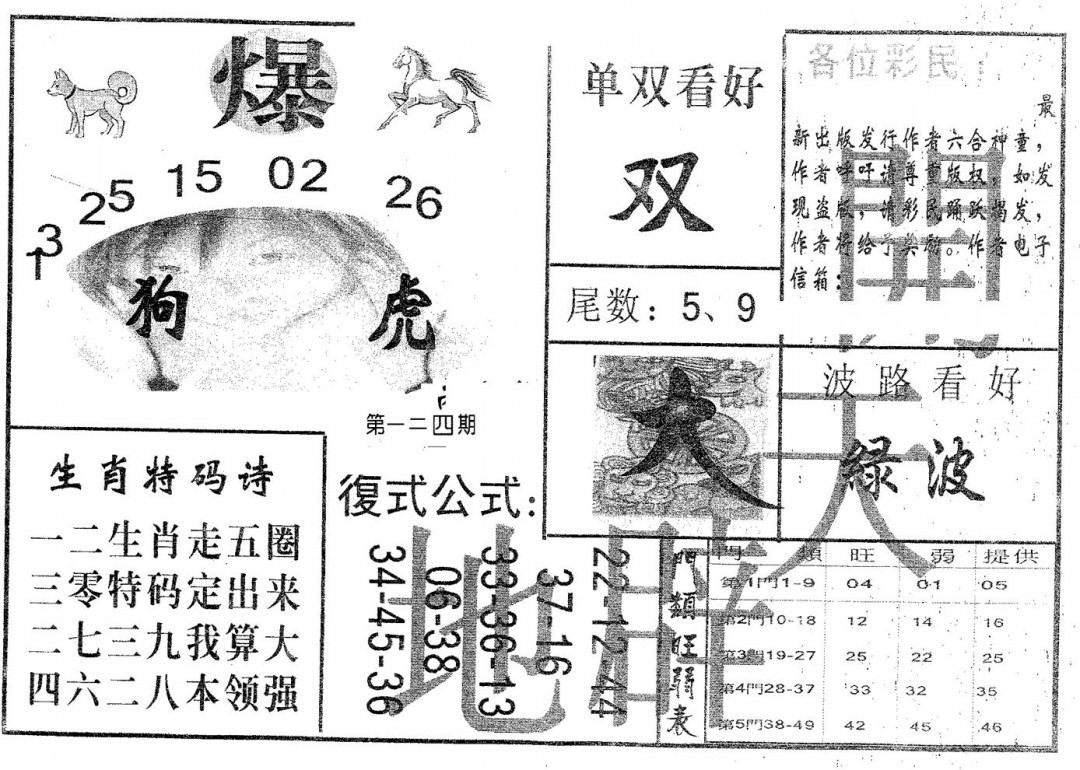 爆
13
25
15
02
26
狗
虎
第一二四期
单双看好
双
尾数：5、9
各位彩民：
最
新出版发行作者六合神童，
作者呼吁请尊重版权，如发
现盗版，请彩民踊跃揭发，
作者将给予奖励。作者电子
信箱：
大
波路看好
綠波
生肖特码诗
一二生肖走五圈
三零特码定出来
二七三九我算大
四六二八本领强
復式公式：
34-45-36
06-38
33-36-13
37-16
22-12-44
門類旺弱表
門類 旺 弱 提供
第1門1-9 04 01 05
第2門10-18 12 14 16
第3門19-27 25 22 25
第4門28-37 33 32 35
第5門38-49 42 45 46
開
天
地